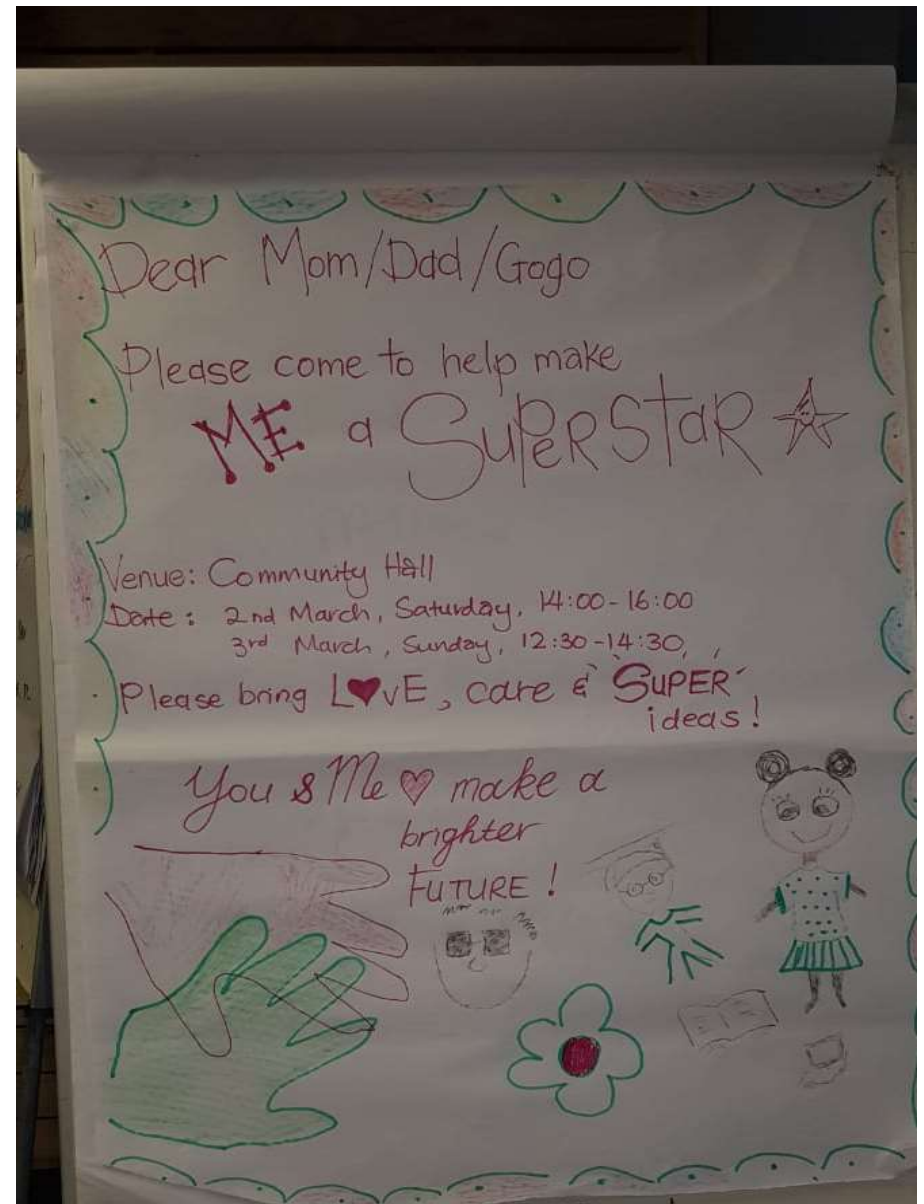 Dear Mom/Dad/Gogo
Please come to help make
ME a SUPERSTAR
Venue: Community Hall
Date: 2nd March, Saturday, 14:00-16:00
3rd March, Sunday, 12:30-14:30,
Please bring L♥VE, care & SUPER
ideas!
You & Me ♥ make a
brighter
FUTURE!